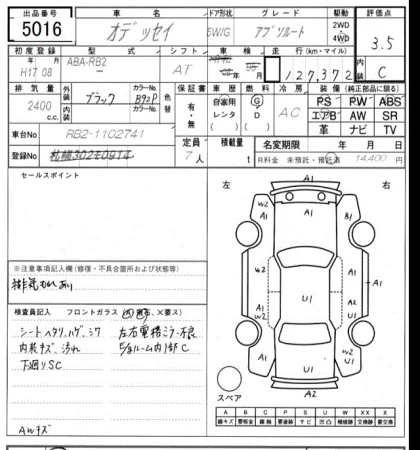 出品番号 車名 ドア形状 グレード 駆動 評価点
5016 オデッセイ 5W/G アブソルート 2WD 4WD 3.5
初度登録 型式 シフト 車検 走行(km・マイル) 内装
H17 08 ABA-RB2 AT 127,372 C
排気量 外装色 カラーNo. 色替 保証書 車歴 燃料 冷房 装備(純正部品に限る)
2400 c.c. ブラック B92P 有・無 自家用 レンタ ( ) G D ( ) AC PS PW ABS
エアB AW SR
革 ナビ TV
内装 カラーNo.
車台No RB2-1102741 定員 積載量 名変期限 年 月 日
登録No 札幌302 0914 7人 t R料金 未預託・預託済 14,400円
セールスポイント
左 右
※注意事項記入欄(修復・不具合箇所および状態等)
排気もれあり
検査員記入 フロントガラス (X要ス)
シートヘタリ、ハゲ、シワ 左右電格ミラー不良
内装キズ、汚れ ルーム内1部C
下廻りSC
AWキズ
A1
W2 A1 A1 B1
W2 U1 W2 A1 A1
A1 U1 A1 W2 U1
スペア A2
A B C P S U W X XX
線キズ 要板金 腐蝕 要塗装 サビ 凹凸 補修跡 交換跡 要交換